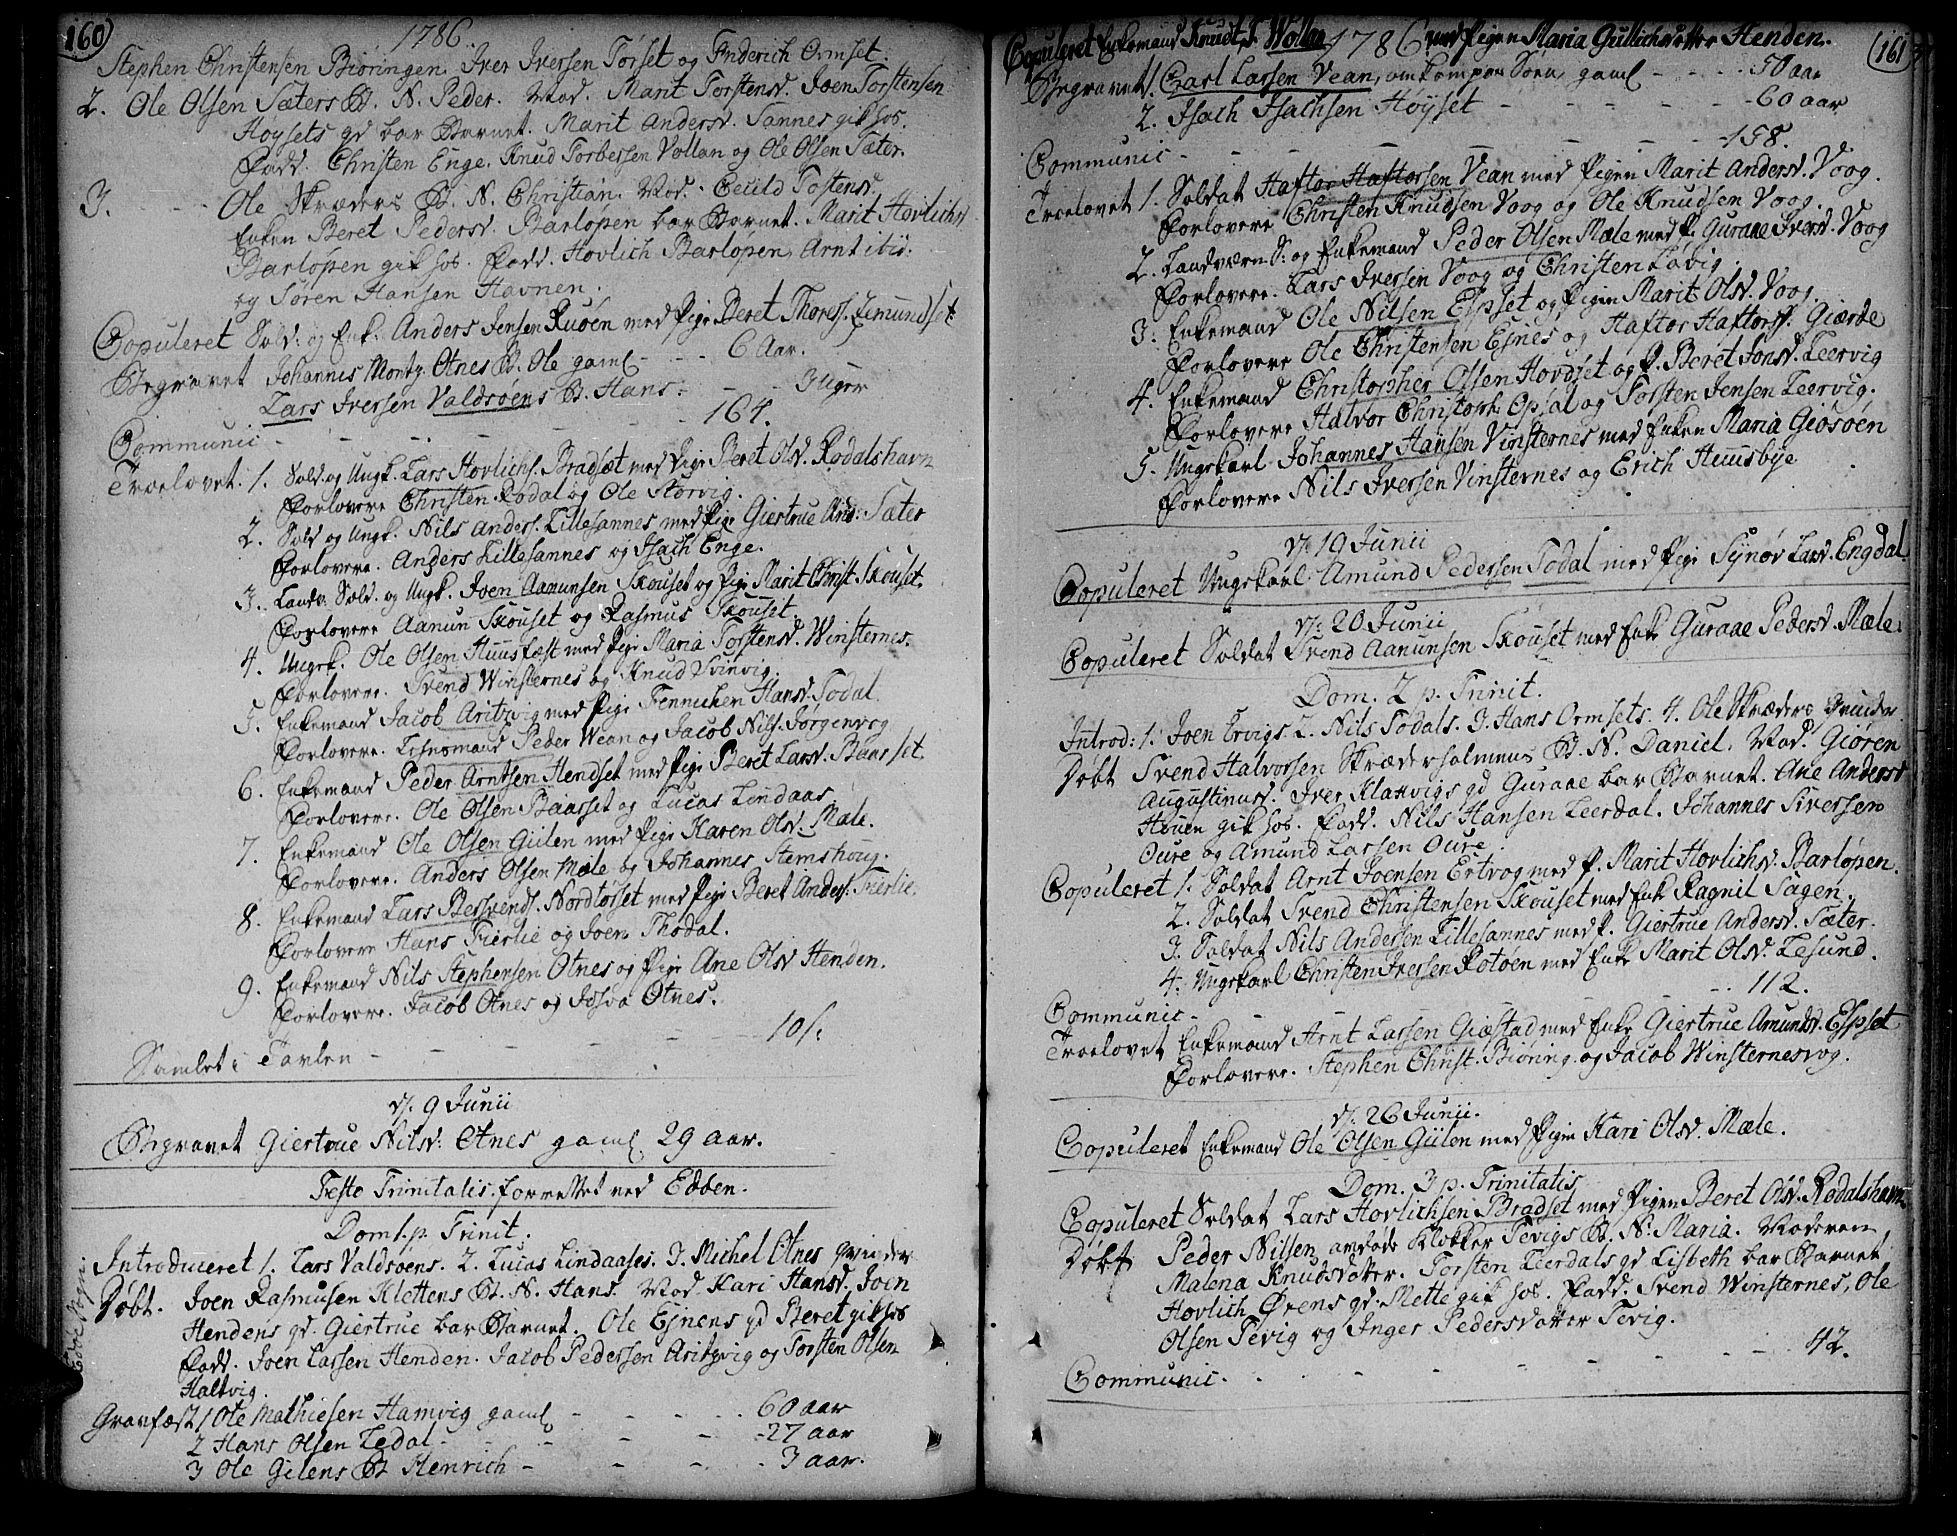 160
1786.
Stephen Christensen Biøringen. Iver Iversen Torset og Friderich Ormset.
2. Ole Olsen Sæters B. N. Peder. Mod. Marit Torstensd. Joen Torstensen
Høysets qd bar Barnet. Marit Andersd. Sannes gik hos.
Fadd. Christen Enge. Knud Torbersen Vollan og Ole Olsen Sæter.
3. Ole Skræders B. N. Christian. Mod. Cecild Tostensd.
Enken Beret Pedersd. Barlopen bar Barnet. Marit Hovlichsd
Barlopen gik hos. Fadd. Hovlich Barlopen, Arnt
og Søren Hansen Havnen.
Copuleret Sold. og Enk. Anders Jensen Ruøen med Pige Beret Thores. Zemundset
Begravet Johannes Montz. Otnes B. Ole gaml - - - 6 Aar.
Lars Iversen Valdsøens B. Hans: - - 3 Uger
Communic - - - - - - 164.
Troelovet. 1. Sold. og Ungk. Lars Hovlichs. Bradset med Pige Beret Olsd. Rodalshavn
Forlovere Christen Rodal og Ole Storvig.
2. Sold og Ungk. Nils Anders. Lillesannes med Pige Giertrue And: Sæter
Forlovere. Anders Lillesannes og Isach Enge.
3. Landv. Sold. og Ungk. Joen Aanunsen Skouset og Pige Marit Christ. Skouset.
Forlovere Aanun Skouset og Rasmus Skouset.
4. Ungk. Ole Olsen Huusfæst med Pige Maria Torstensd. Winsternes.
Forlovere. Svend Winsternes og Knud Svinvig.
5. Enkemand Jacob Aritzvig med Pige Fennichen Hansd. Todal
Forlovere. Lensmand Peder Wean og Jacob Nils. Jørgenvog
6. Enkemand Peder Arntsen Hendset med Pige Beret Larsd. Baasset.
Forlovere. Ole Olsen Baasset og Lucas Lindaas
7. Enkemand Ole Olsen Gulen med Pige Karen Olsd. Mæle.
Forlovere. Anders Olsen Mæle og Johannes Stemshoug.
8. Enkemand Lars Bersvends. Nordtøset med Pige Beret Anders. Fierlie.
Forlovere Hans Fierlie og Joen Thodal.
9. Enkemand Nils Stephensen Otnes og Pige Ane Olsd Henden.
Forlovere. Jacob Otnes og Josva Otnes.
Samlet i Tavlen - - - - - - 10/.
d. 9 Junii
Begravet Giertrue Nilsd: Otnes gaml 29 aar.
Festo Trinitatis. forrettet ved Edøen.
Dom 1. p. Trinit.
Edøe Sogn.
Introduceret 1. Lars Valdsøens. 2. Lucas Lindaases. 3. Michel Otnes Qvinder
Døbt. Joen Rasmusen Klettens B. N. Hans. Mod. Kari Hansd. Joen
Hendens qd. Giertrue bar Barnet. Ole Ejnens qd Beret gik hos
Fadd. Joen Larsen Henden. Jacob Pedersen Aritzvig og Torsten Olsen
Haltvig.
Gravfæst 1 Ole Mathiesen Hamvig gaml - - - - 60 aar
2 Hans Olsen Ledal - - - - 27 aar
3 Ole Gilens B Henrich - - - - 3 aar.
Copuleret Enkemand Knud T. Wollan 1786 med Pigen Maria Gullichsdotter Henden.
161
Begravet 1. Carl Larsen Vean, omkom paa Søen gaml - - - 50 aar
2. Isach Isachsen Høyset - - - - 60 aar
Communic - - - - - - 158.
Troelovet 1. Soldat Haftor Haftorsen Vean med Pigen Marit Andersd. Voog.
Forlovere Christen Knudsen Voog og Ole Knudsen Voog.
2. Landværn S: og Enkemand Peder Olsen Mæle med P. Guraae Iversd. Voog
Forlovere. Lars Iversen Voog og Christen Lovig.
3. Enkemand Ole Nilsen Espset og Pigen Marit Olsd. Voog.
Forlovere Ole Christensen Ejnes og Haftor Haftors. Giærde
4. Enkemand Christopher Olsen Hovdset og P. Beret Jonsd. Leervig
Forlovere Halvor Christoph. Opsal og Torsten Jensen Leervig.
5. Ungekarl Johannes Hansen Vinsternes med Enken Maria Giøsøen
Forlovere Nils Iversen Vinsternes og Erich Huusbye
d. 19 Junii
Copuleret Ungekarl Amund Pedersen Todal med Pige Synøv Larsd. Engdal
d. 20 Junii
Copuleret Soldat Svend Aanunsen Skouset med Enke Guraae Pedersd. Mæle.
Dom. 2 p. Trinit.
Introd: 1. Joen Ervigs 2. Nils Todals. 3. Hans Ormsets. 4. Ole Skræders Qvinder
Døbt Svend Halvorsen Skrædersholmens B. N. Daniel. Mod. Giøren
Augustinusd. Iver Klakvigs qd Guraae bar Barnet. Ane Andersd
Huen gik hos. Fadd. Nils Hansen Leerdal. Johannes Siversen
Oure og Amund Larsen Oure.
Copuleret 1. Soldat Arnt Joensen Ertvog med P. Marit Hovlichsd. Barløpen.
2. Soldat Svend Christensen Skouset med Enk Ragnil Sagen.
3. Soldat Nils Andersen Lillesannes med P. Giertrue Andersd. Sæter.
4. Ungekarl Christen Iversen Rotøen med Enke Marit Olsd. Lesund.
Communic - - - - - 112.
Troelovet Enkemand Arnt Larsen Giæstad med Enke Giertrue Amundsd. Espset
Forlovere. Stephen Christ. Biøring. og Jacob Winsternesvog.
d. 26 Junii.
Copuleret Enkemand Ole Olsen Gülen med Pigen Kari Olsd. Mæle.
Dom. 3 p. Trinitatis
Copuleret Soldat Lars Hovlichsen Bradset med Pigen Beret Olsd. Rodalshavn
Døbt Peder Nilsen, afdøde Klokker Tevigs B. N. Maria. Moderen
Malena Knudsdotter. Torsten Leerdals qd Lisbeth bar Barnet
Hovlich Ørens qd. Mette gik hos. Fadd. Svend Winsternes, Ole
Olsen Tevig og Inger Pedersdotter Tevig.
Communic. - - - - - - 42.